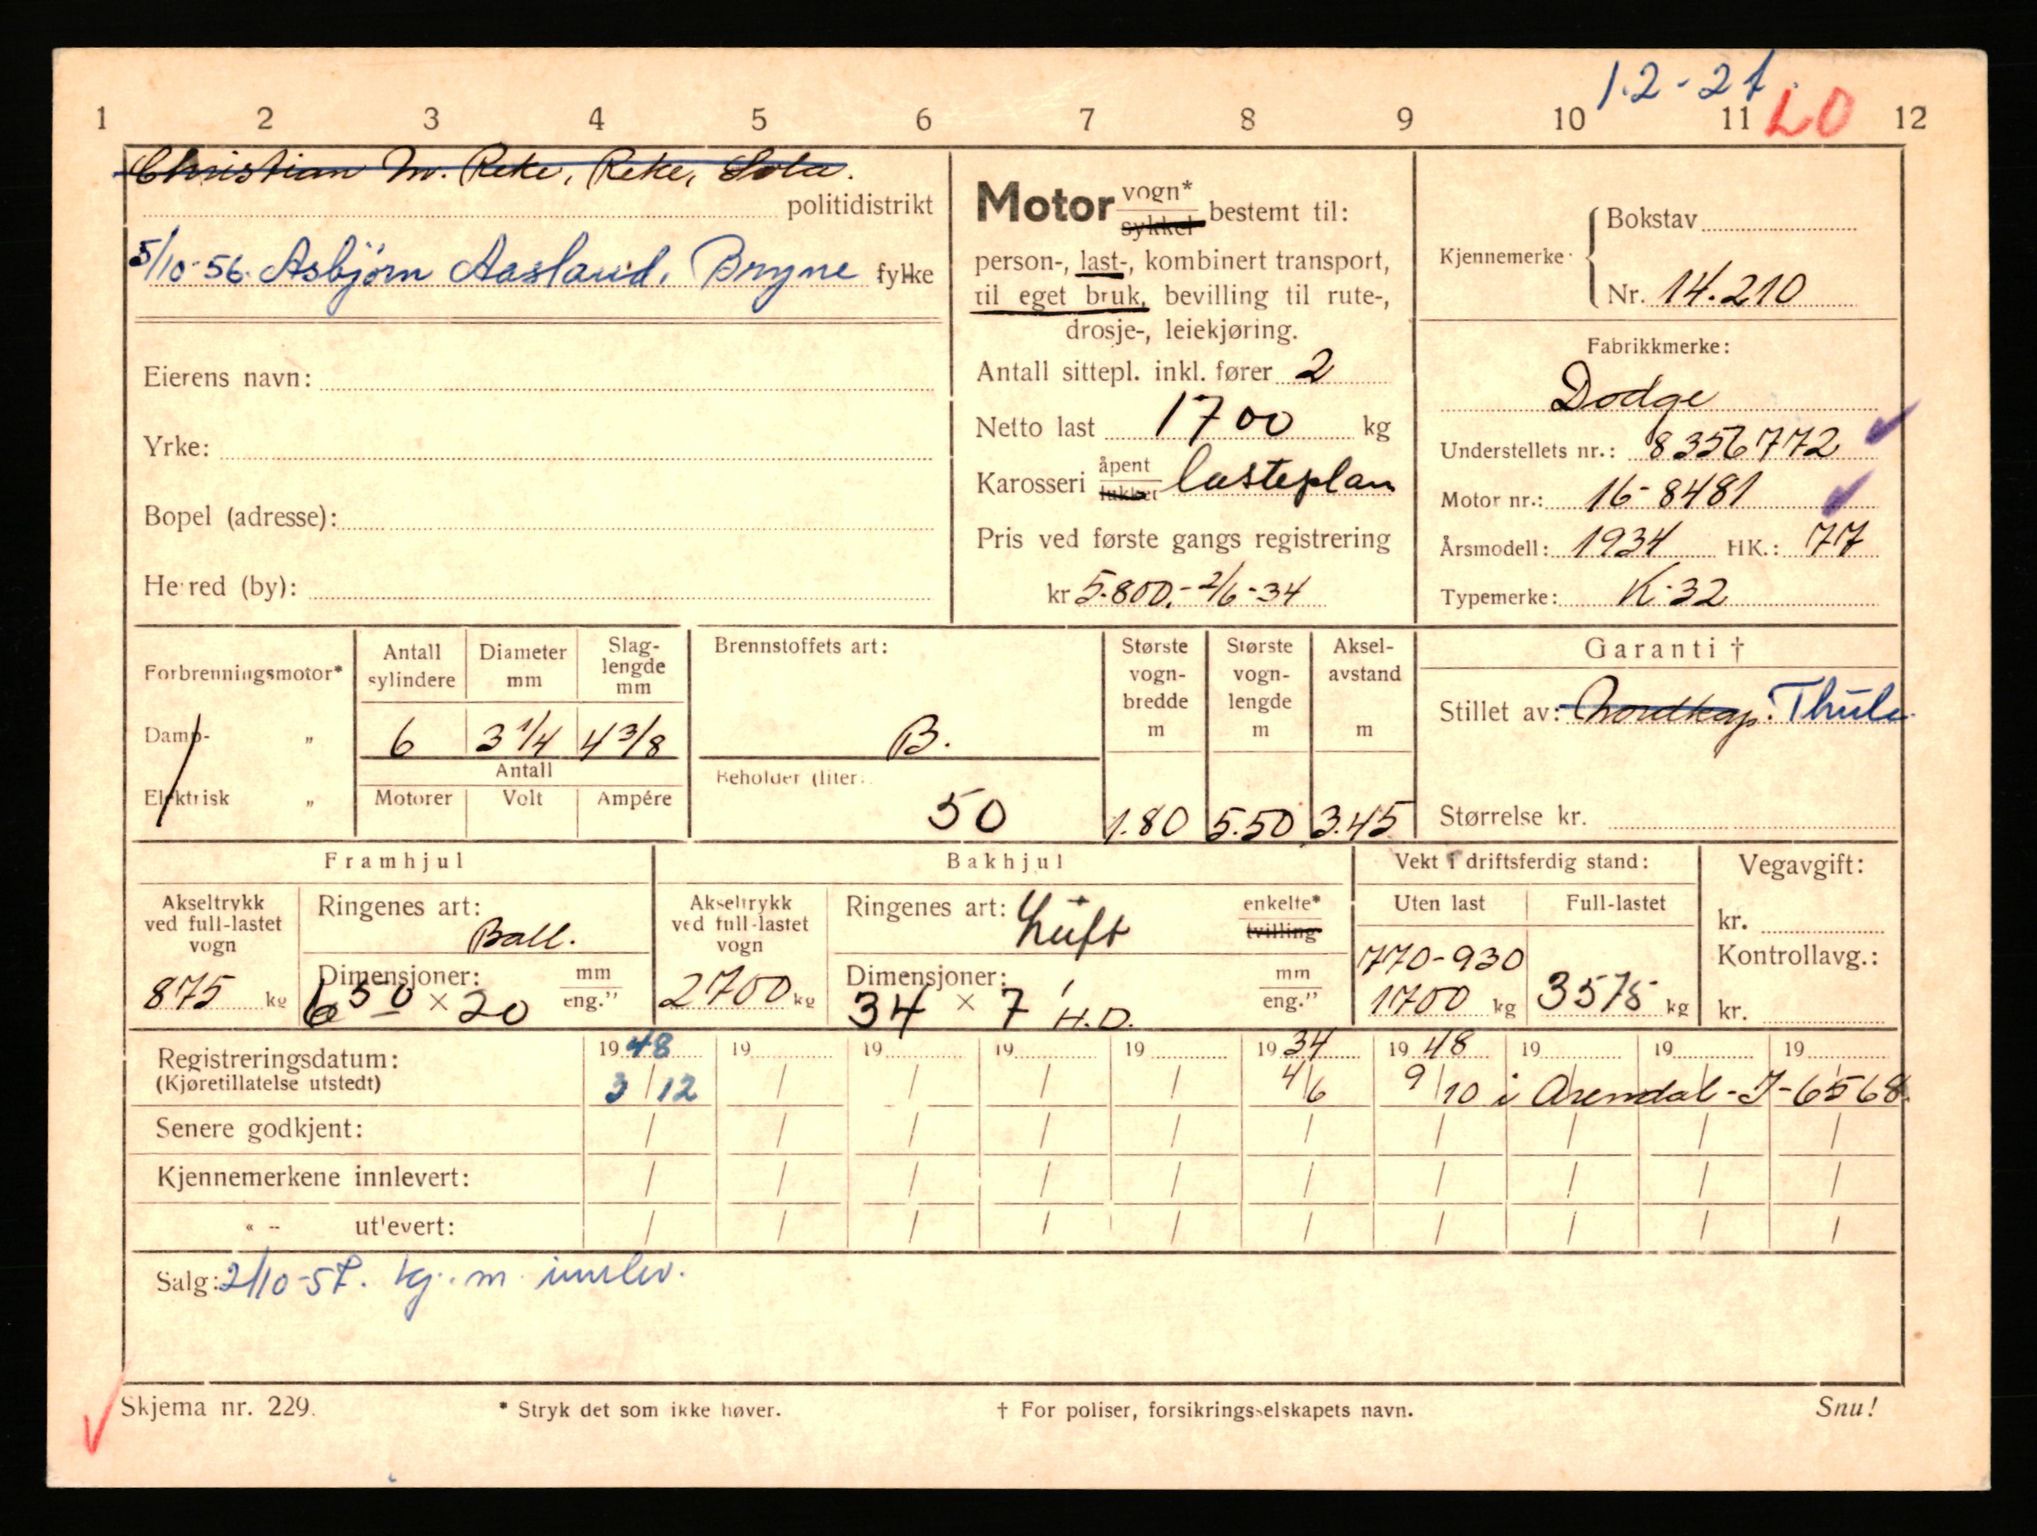 1.2-21
LO
1 2 3 4 5 6 7 8 9 10 11 12
Christian M. Reke, Reke, Sola.
politidistrikt
5/10-56. Asbjørn Aasland, Bryne fylke
Eierens navn:
Yrke:
Bopel (adresse):
Herred (by):
Motor vogn* sykkel bestemt til:
person-, last-, kombinert transport,
til eget bruk, bevilling til rute-,
drosje-, leiekjøring.
Antall sittepl. inkl. fører 2
Netto last 1700 kg
Karosseri åpent lukket lasteplan
Pris ved første gangs registrering
kr 5.800.- 2/6-34
Kjennemerke
Bokstav
Nr. 14.210
Fabrikkmerke:
Dodge
Understellets nr.: 8356772
Motor nr.: 16-8481
Årsmodell: 1934 HK.: 77
Typemerke: K-32
Forbrenningsmotor*
Damp- „
Elektrisk „
Antall sylindere
Diameter mm
Slag-lengde mm
6 3 1/4 4 3/8
Antall
Motorer Volt Ampére
Brennstoffets art:
B.
Beholder (liter:
50
Største vogn-bredde m
1.80
Største vogn-lengde m
5.50
Aksel-avstand m
3.45
Garanti †
Stillet av: Nordkap. Thule
Størrelse kr.
Framhjul
Akseltrykk ved full-lastet vogn
875 kg
Ringenes art:
Ball.
Dimensjoner: mm
650 × 20 eng."
Bakhjul
Akseltrykk ved full-lastet vogn
2700 kg
Ringenes art: Luft enkelte* tvilling
Dimensjoner: mm
34 × 7 H.D. eng."
Vekt i driftsferdig stand:
Uten last Full-lastet
770-930
1700 kg 3575 kg
Vegavgift:
kr.
Kontrollavg.:
kr.
Registreringsdatum: 1948 19 19 19 19 1934 1948 19 19 19
(Kjøretillatelse utstedt) 3/12 / / / / 4/6 9/10 i Arendal - I-6568.
Senere godkjent: / / / / / / / / / /
Kjennemerkene innlevert: / / / / / / / / / /
« -- utlevert: / / / / / / / / / /
Salg: 2/10-57. kj.m. innlev.
Skjema nr. 229.
* Stryk det som ikke høver.
† For poliser, forsikringsselskapets navn.
Snu!